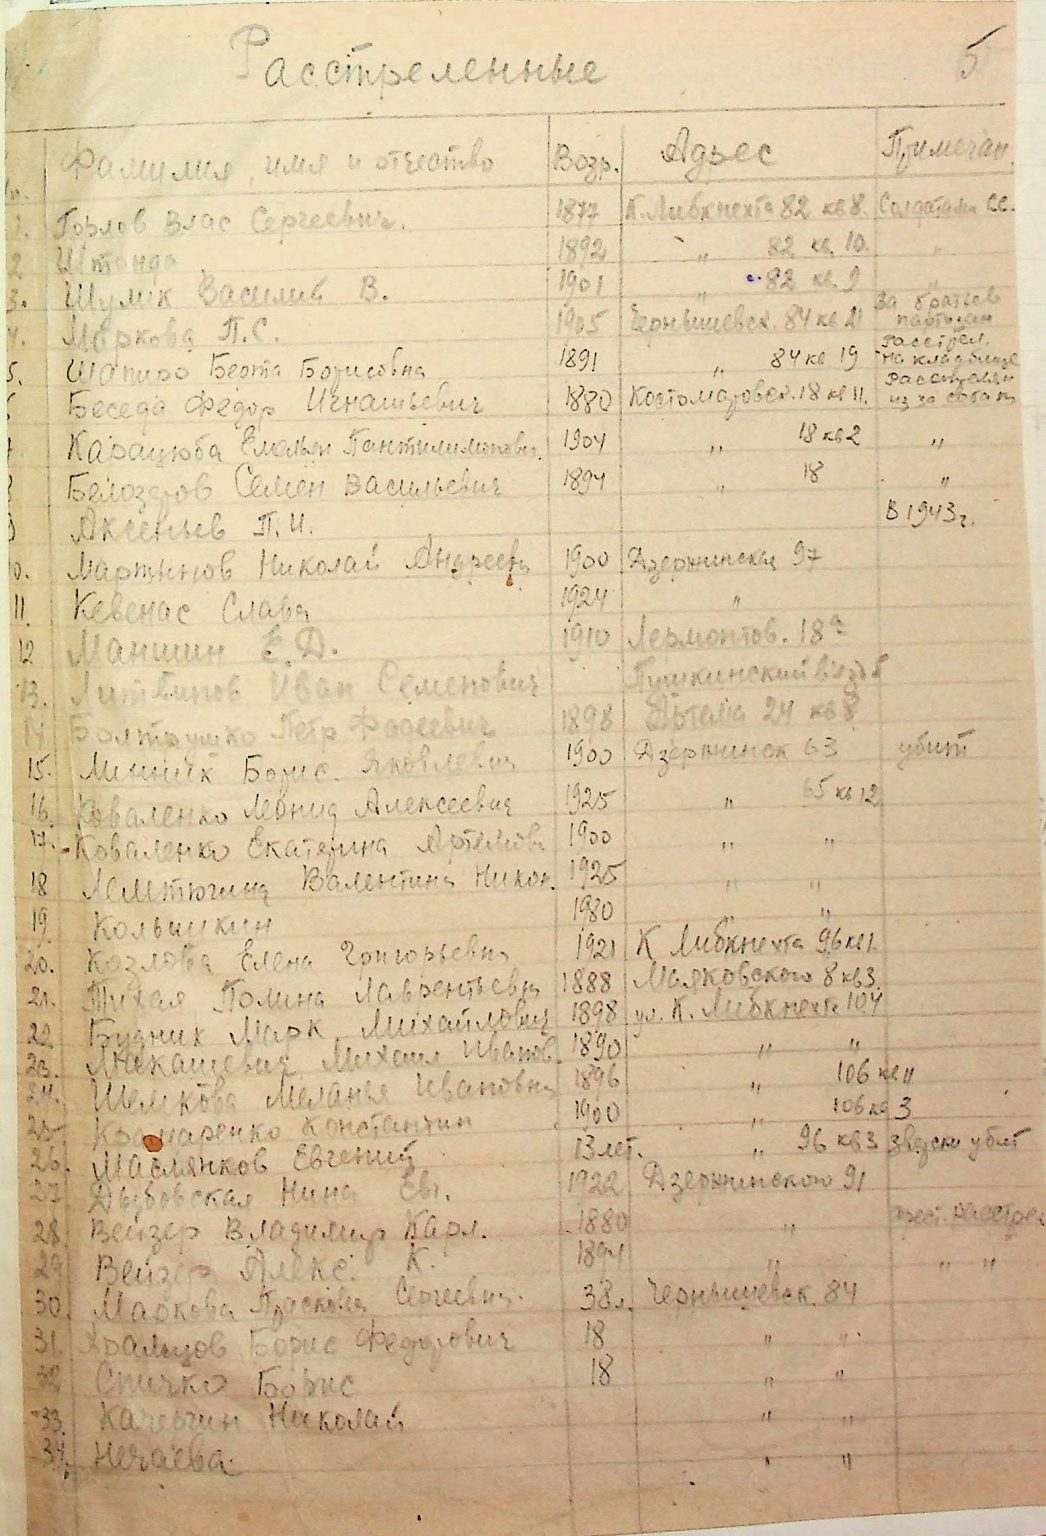 Расстреленные 5
Фамилия, имя и отчество Возр. Адрес Примечан.
1. Горлов Влас Сергеевич. 1877 К. Либкнехта 82 кв 8. Солдатами СС.
2 Штонда 1892 " 82 кв. 10. "
3. Шумик Василий В. 1901 " 82 кв. 9 "
4. Маркова П.С. 1905 Чернышевск. 84 кв 21 За братьев партизан
5. Шапиро Берта Борисовна 1891 " 84 кв 19 расстрел. на кладбище
6 Беседа Федор Игнатьевич 1880 Костомаровск. 18 кв 11. Расстрелян из за собаки
7 Карацюба Емельян Пантилимонович. 1904 " 18 кв 2 "
8 Белозеров Семен Васильевич 1894 " 18 "
9 Аксентьев П.И. В 1943 г.
10. Мартынов Николай Андреевич 1900 Дзержинская 97
11. Кевенас Слава 1924 "
12 Маншин Е.Д. 1910 Лермонтов. 18а
13. Литвинов Иван Семенович Пушкинский в'езд
14 Болтушко Петр 1898 Артема 24 кв 8
15. Линник Борис. Яковлевич 1900 Дзержинск 63 убит
16. Коваленко Леонид Алексеевич 1925 " 65 кв 12
17. Коваленко Екатерина Артемов. 1900 " "
18 Валентина Никон. 1925 " "
19. Колышкин 1980 " "
20. Козлова Елена Григорьевна 1921 К Либкнехта 96 кв 1.
21. Тихая Полина Лаврентьевна 1888 Маяковского 8 кв 3.
22. Будник Марк Михайлович 1898 ул. К. Либкнехта 104
23. Михаил Иванов. 1890 " "
24. Меланья Ивановна 1896 " 106 кв 11
25. Крамаренко Константин 1900 " 106 кв 3
26. Маслянков Евгений 13 лет. " 96 кв 3 Зверски убит
27. Нина Евг. 1922 Дзержинского 91
28. Вейзер Владимир Карл. 1880 " расстрел
29 Вейзер Алекс. К. 1894 " " "
30. Маркова Прасковья Сергеевна. 38 л. Чернышевск. 84
31. Храмцов Борис Федорович 18 " "
32 Спичка Борис 18 " "
33. Качергин Николай " "
34. Нечаева. " "